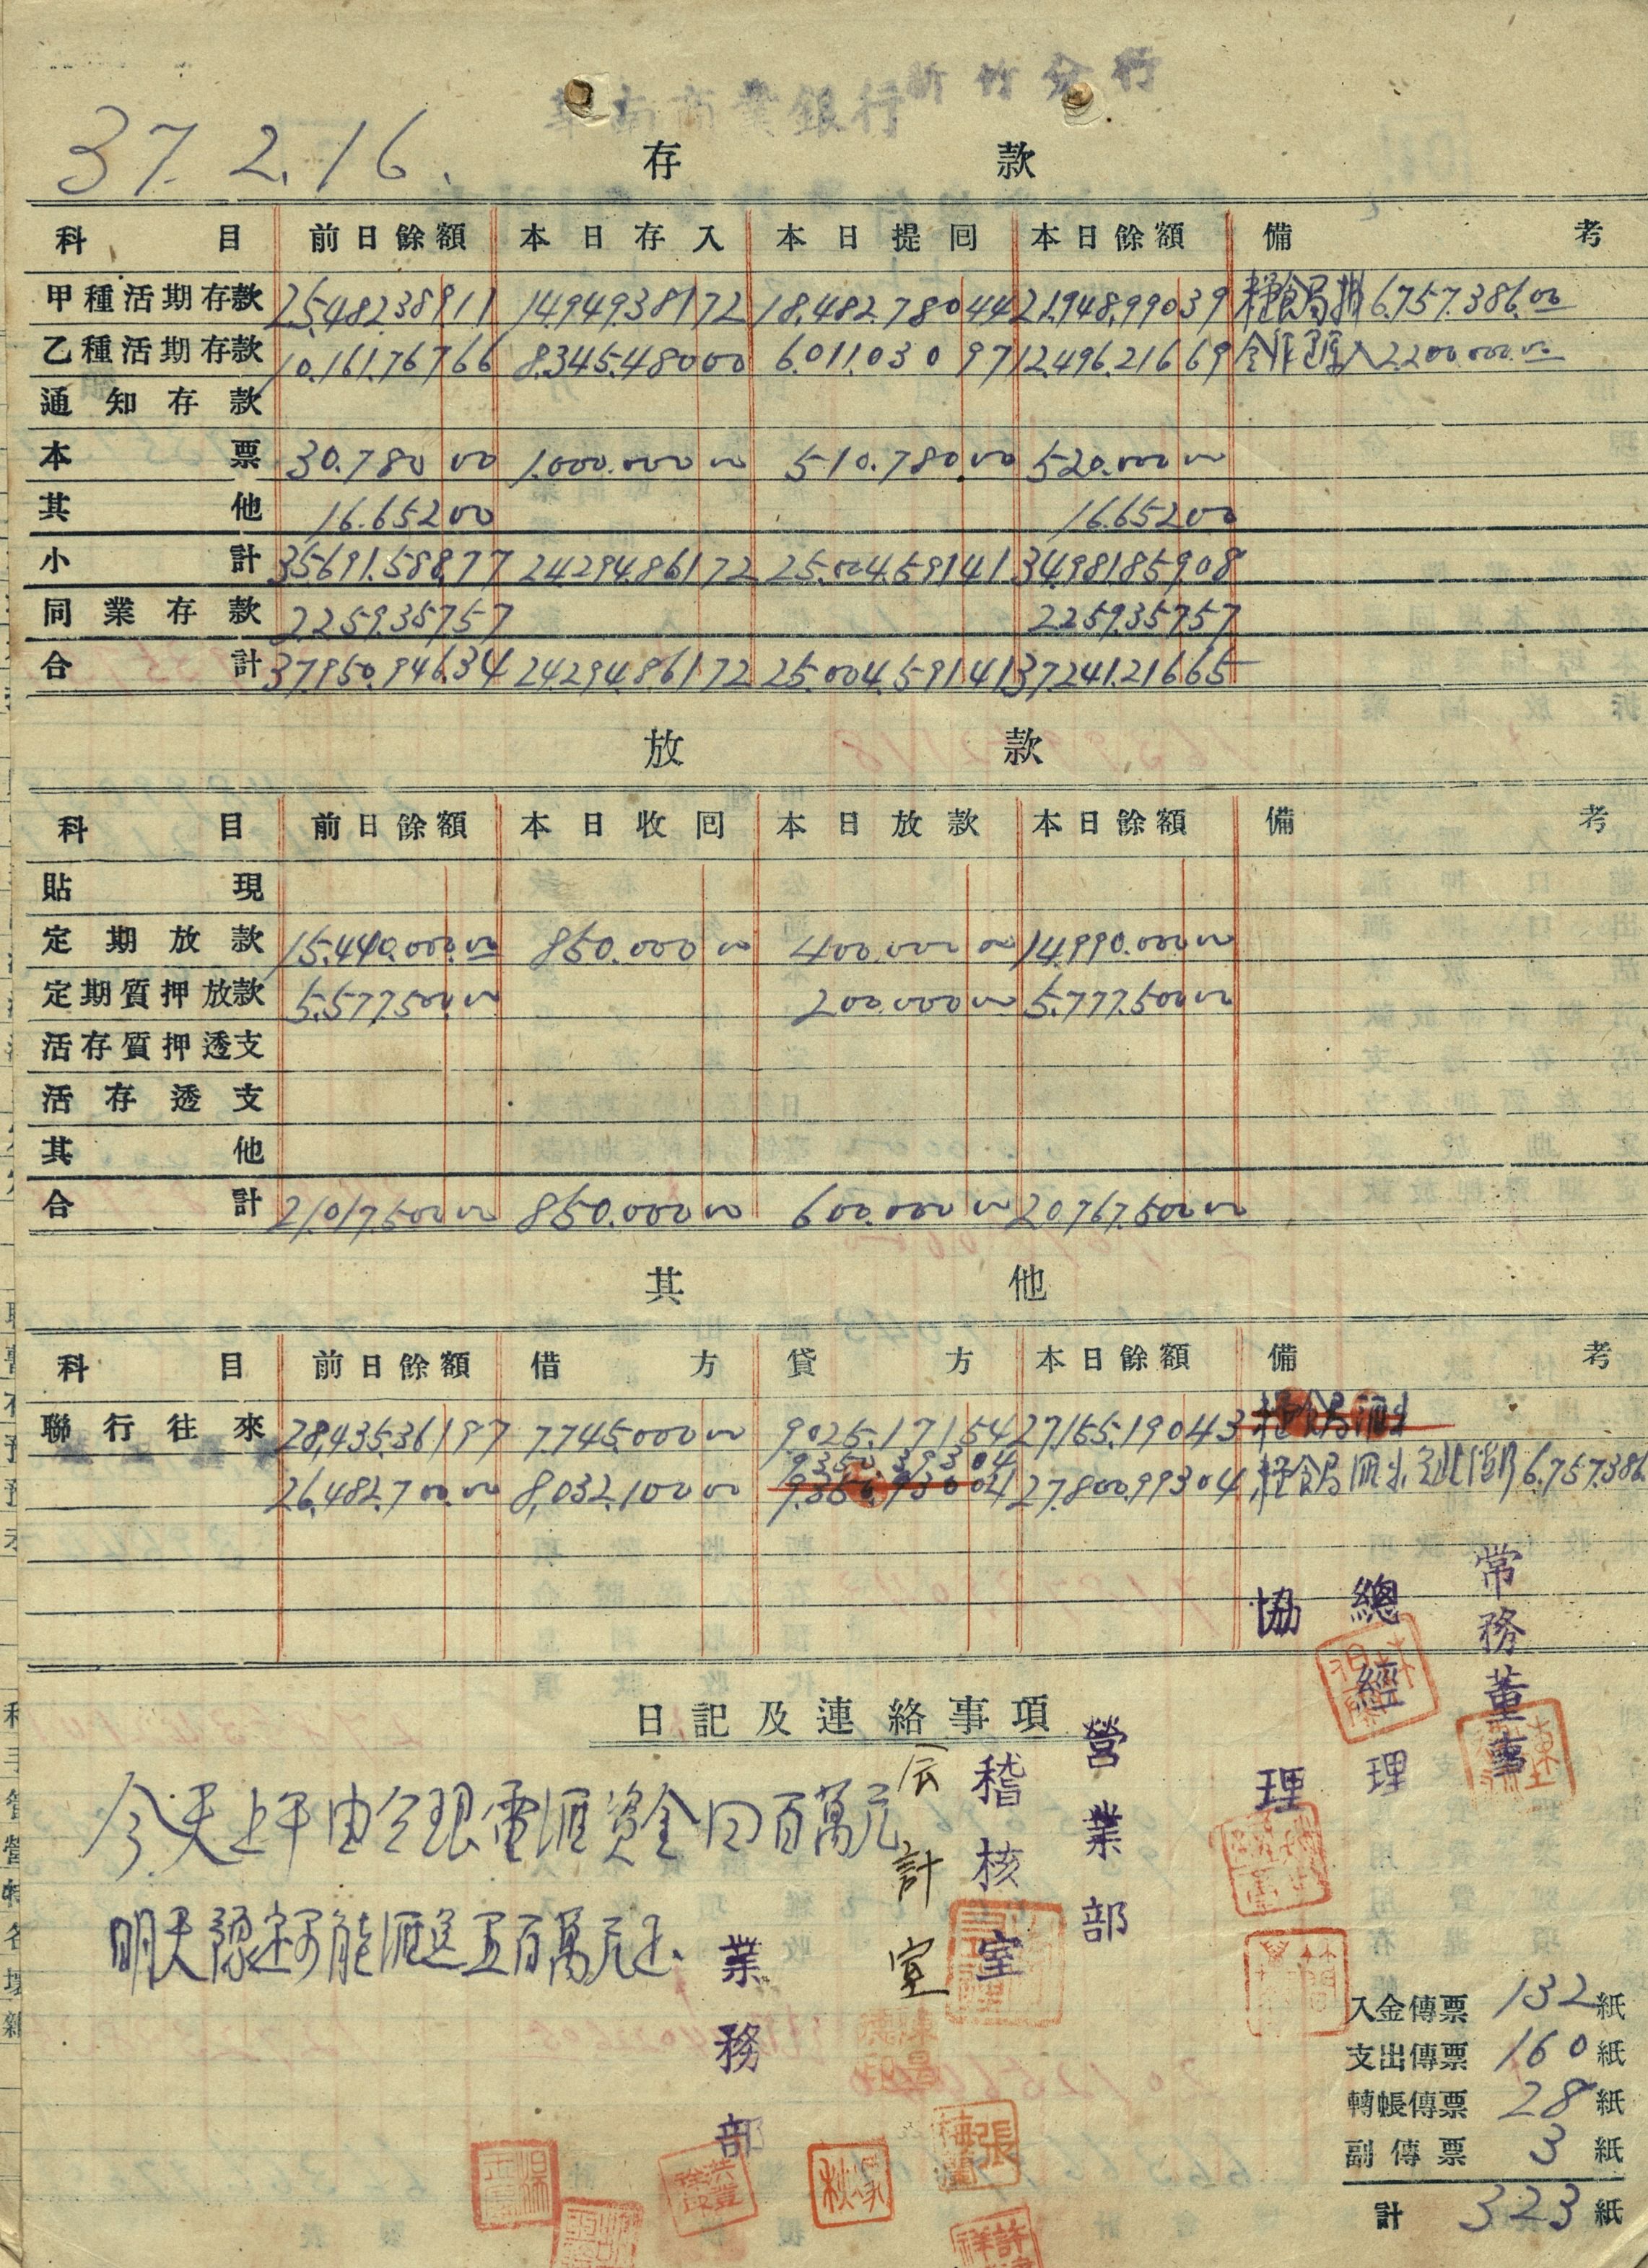 華南商業銀行新竹分行
37.2.16.
存款
科目 前日餘額 本日存入 本日提回 本日餘額 備考
甲種活期存款 25,482,389 11 14,949,381 72 18,482,780 44 21,948,990 39 糧食局 6,757,386.00
乙種活期存款 10,161,767 66 8,345,480 00 6,011,030 97 12,496,216 69 2,200,000.00
通知存款
本票 30,780 00 1,000,000 00 510,780 00 520,000 00
其他 16,652 00 16,652 00
小計 35,691,588.77 24,294,861 72 25,004,591 41 34,981,859 08
同業存款 2,259,357 57 2,259,357 57
合計 37,950,946.34 24,294,861 72 25,004,591 41 37,241,216 65
放款
科目 前日餘額 本日收回 本日放款 本日餘額 備考
貼現
定期放款 15,440,000.00 850,000 00 400,000 00 14,990,000 00
定期質押放款 5,577,500.00 200,000 00 5,777,500 00
活存質押透支
活存透支
其他
合計 21,017,500 00 850,000 00 600,000 00 20,767,500 00
其他
科目 前日餘額 借方 貸方 本日餘額 備考
聯行往來 28,435,361 97 7,745,000 00 9,025,171 54 27,155,190 43 糧食局匯出
9,350,393 04
26,482,700.00 8,032,100 00 27,800,993 04 糧食局匯出 6,757,386
常務董事
總經理
協理
日記及連絡事項
營業部
稽核室
会計室
業務部
今天上午由台銀電匯資金四百萬元
明天預定可能匯送五百萬元正.
入金傳票 132 紙
支出傳票 160 紙
轉帳傳票 28 紙
副傳票 3 紙
計 323 紙